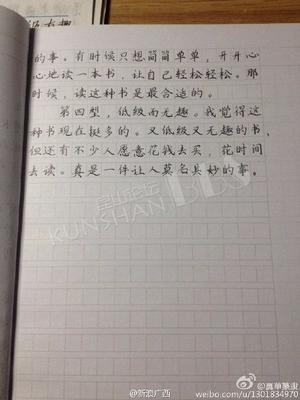 的事。有时候只想简简单单,开开心
心地读一本书,让自己轻松轻松。那
时候,读这种书是最合适的。
第四型,低级而无趣。我觉得这
种书现在挺多的。又低级又无趣的书,
但还有不少人愿意花钱去买,花时间
去读。真是一件让人莫名其妙的事。
昆山论坛
KUNSHAN BBS
@新浪广西
weibo.com/u/1301834970